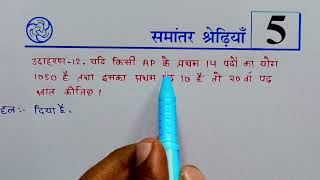 समांतर श्रेढ़ियाँ 5
उदाहरण-12. यदि किसी AP के प्रथम 14 पदों का योग
1050 है तथा इसका प्रथम पद 10 है तो 20 वाँ पद
ज्ञात कीजिए।
हल:- दिया है,